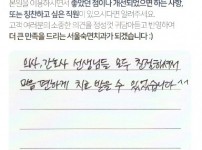 본원을 이용하시면서 좋았던 점이나 개선되었으면 하는 사항,
또는 칭찬하고 싶은 직원이 있으시다면 알려주세요.
고객 여러분의 소중한 의견을 정성껏 귀담아듣고 반영하여
더 큰 만족을 드리는 서울숙면치과가 되겠습니다 :)
의사, 간호사 선생님들 모두 친절하셔서
마음 편하게 치료 받을 수 있었습니다~^^